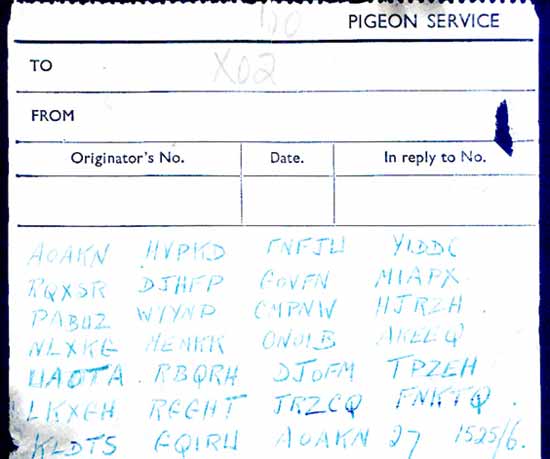 PIGEON SERVICE
TO X02
FROM
Originator's No. Date. In reply to No.
AOAKN HVPKD FNFJW YIDDC
RQXSR DJHFP GOVFN MIAPX
PABUZ WYYNP CMPNW HJRZH
NLXKG MEMKK ONOIB AKEEQ
UAOTA RBQRH DJOFM TPZEH
LKXGH RGGHT JRZCQ FNKTQ
KLDTS GQIRW AOAKN 27 1525/6.